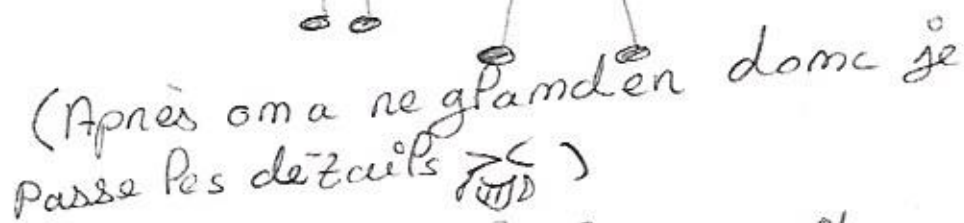 (Après on a re glander donc je
passe les détails ><)